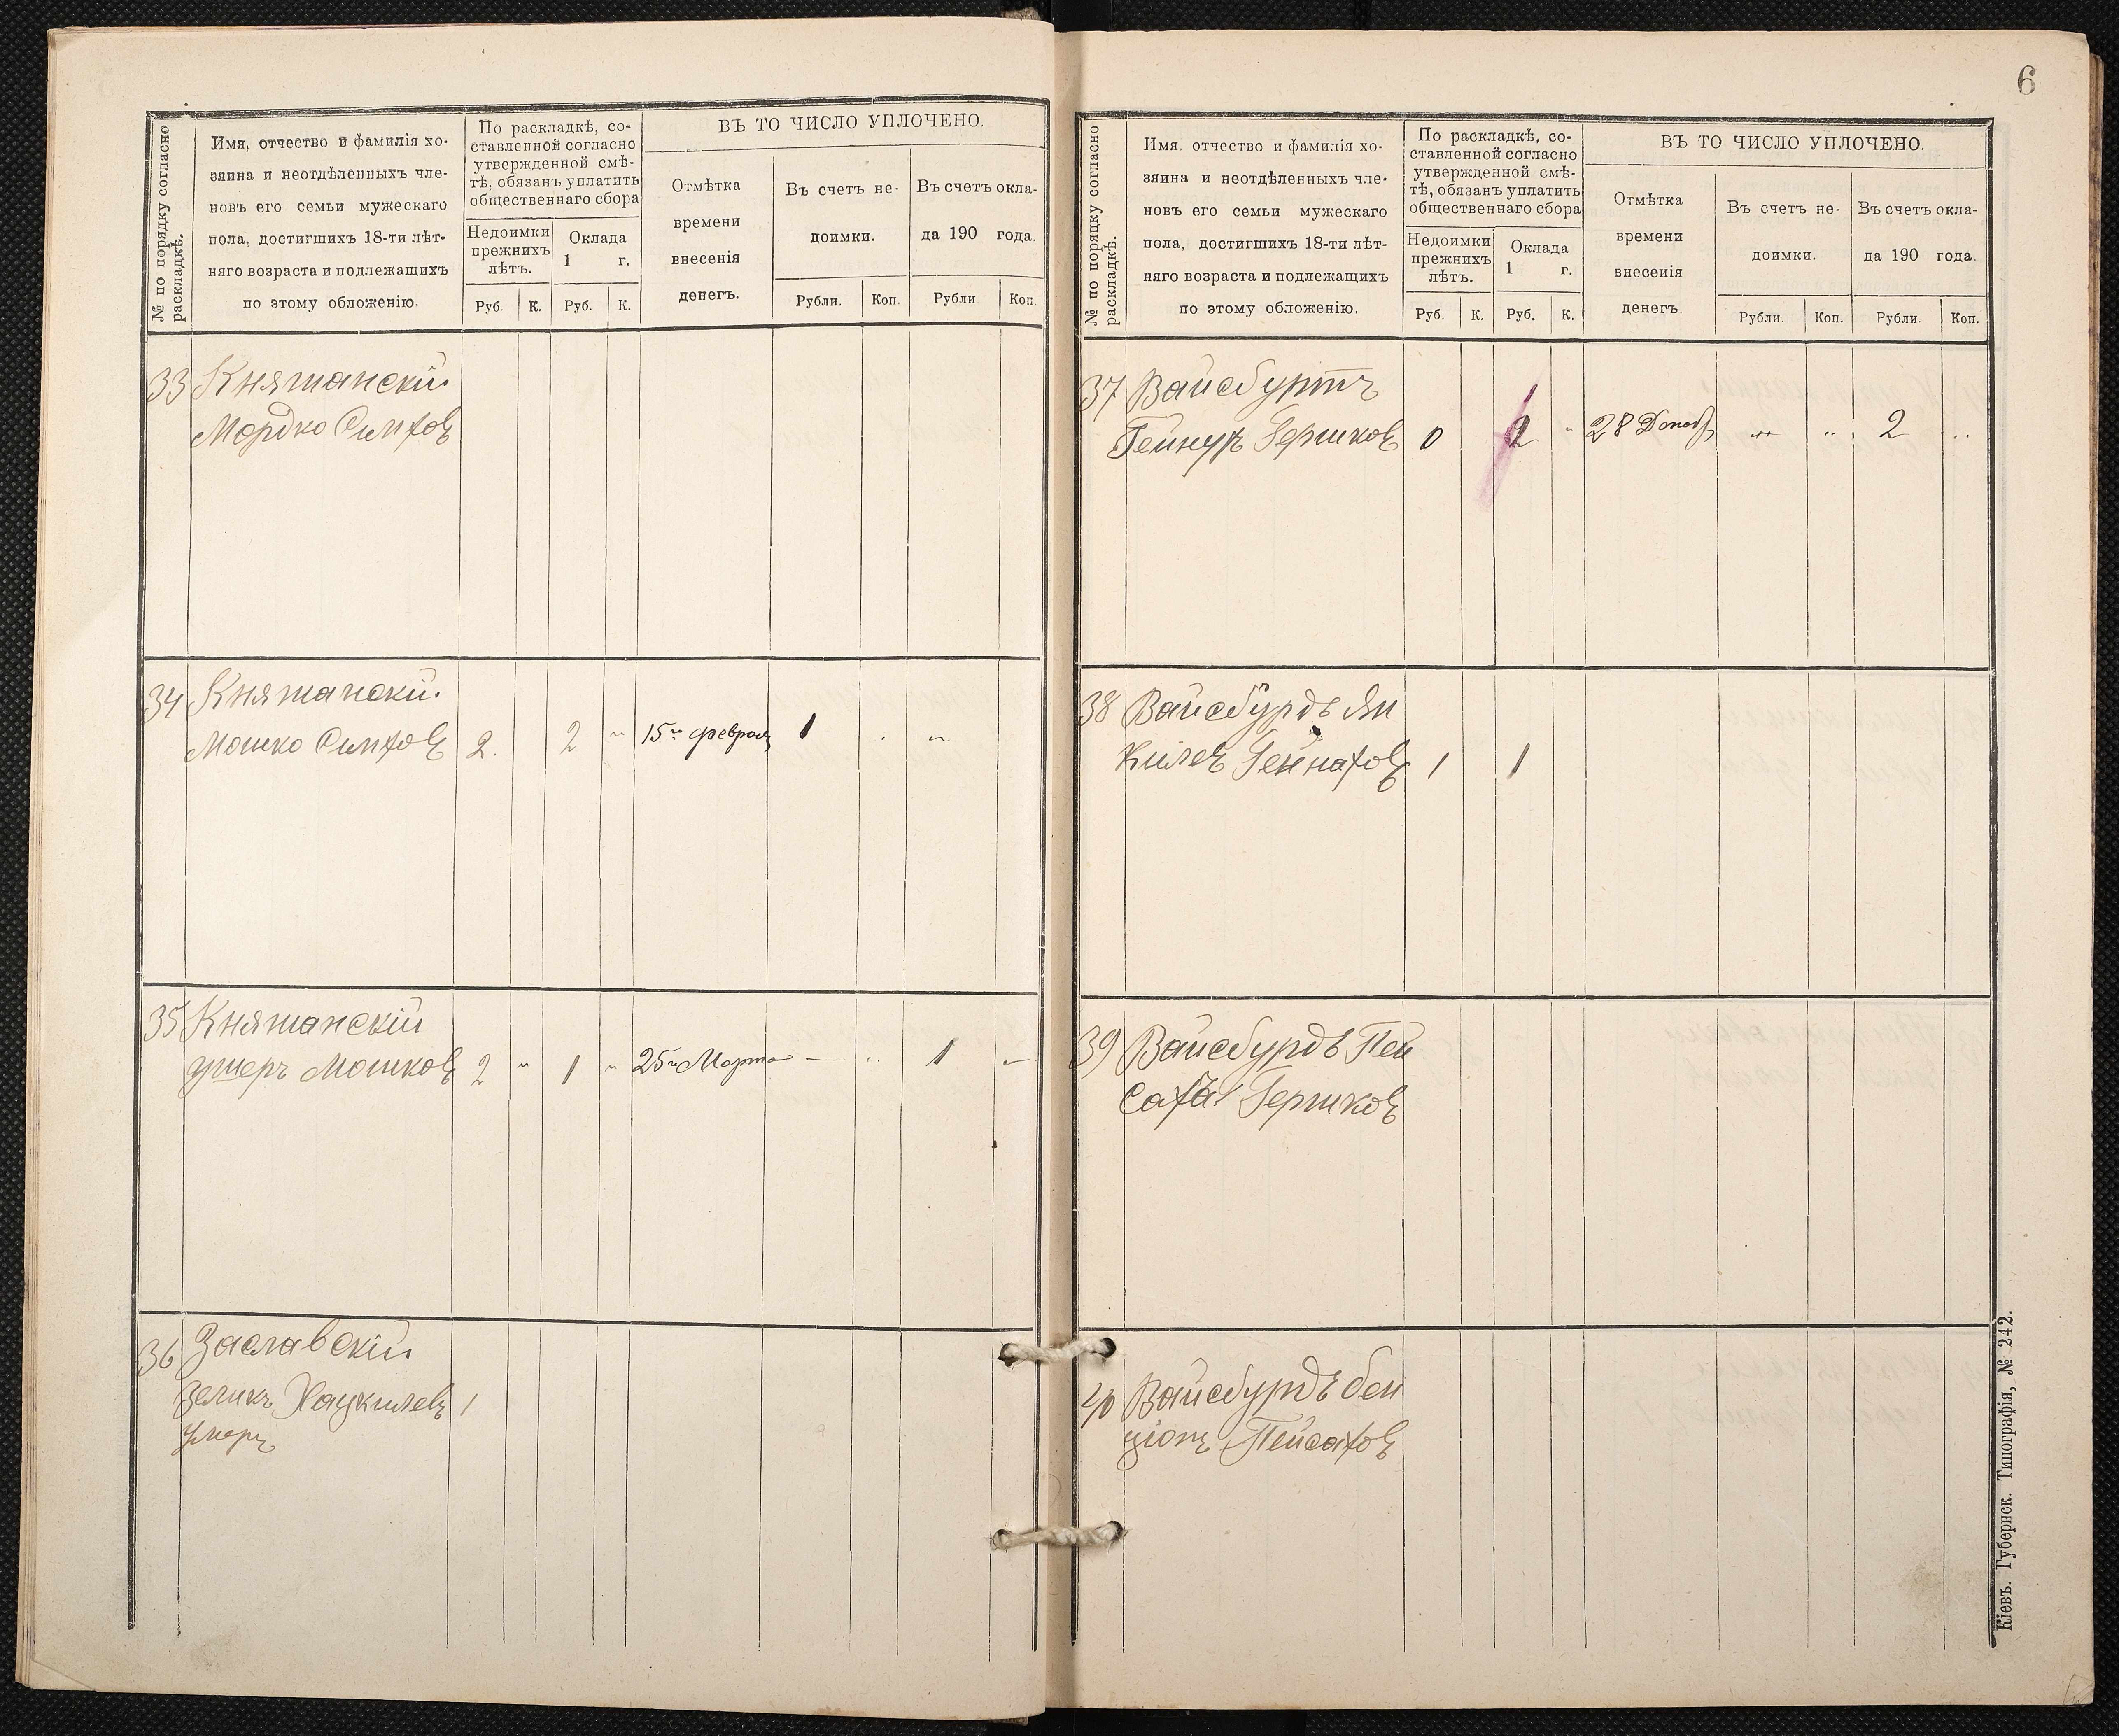 № по порядку согласно
раскладкѣ.
Имя, отчество и фамилія хо-
зяина и неотдѣленныхъ чле-
новъ его семьи мужескаго
пола, достигшихъ 18-ти лѣт-
няго возраста и подлежащихъ
по этому обложенію.
По раскладкѣ, со-
ставленной согласно
утвержденной смѣ-
тѣ, обязанъ уплатить
общественнаго сбора
Недоимки
прежнихъ
лѣтъ.
Оклада
1 г.
Руб. К. Руб. К.
ВЪ ТО ЧИСЛО УПЛОЧЕНО.
Отмѣтка
времени
внесенія
денегъ.
Въ счетъ не-
доимки.
Въ счетъ окла-
да 190 года.
Рубли. Коп. Рубли Коп.
33 Княжанскій
Мордко Симхов
34 Княжанскій.
Мошко Симховъ 2. 2 " 15го февраля 1 . "
35 Княжанскій
Ушеръ Мошковъ 2 " 1 " 25го Марта — .. 1 —
36 Заславскій
Зеликъ Хаскилевъ 1
умеръ
6
№ по порядку согласно
раскладкѣ.
Имя. отчество и фамилія хо-
зяина и неотдѣленныхъ чле-
новъ его семьи мужескаго
пола, достигшихъ 18-ти лѣт-
няго возраста и подлежащихъ
по этому обложенію.
По раскладкѣ, со-
ставленной согласно
утвержденной смѣ-
тѣ, обязанъ уплатить
общественнаго сбора
Недоимки
прежнихъ
лѣтъ.
Оклада
1 г.
Руб. К. Руб. К.
ВЪ ТО ЧИСЛО УПЛОЧЕНО.
Отмѣтка
времени
внесенія
денегъ
Въ счетъ не-
доимки.
Въ счетъ окла-
да 190 года.
Рубли. Коп. Рубли. Коп.
37 Вайсбуртъ
Гершковъ 0 2 " 28 " .. 2 ..
38 Вайсбурдъ Ян
килевъ Гейнаховъ 1 1
39 Вайсбурдъ Пей
Сахъ Гершковъ
40 Вайсбурдъ бен
ціонъ Пейсаховъ
Кіевъ. Губернск. Типографія, № 242.